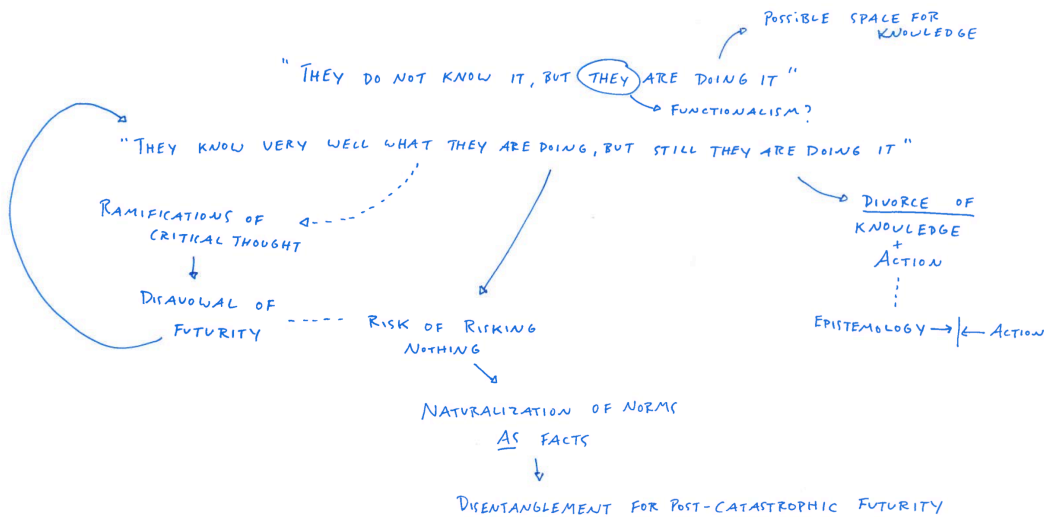 POSSIBLE SPACE FOR
KNOWLEDGE
"THEY DO NOT KNOW IT, BUT THEY ARE DOING IT"
FUNCTIONALISM?
"THEY KNOW VERY WELL WHAT THEY ARE DOING, BUT STILL THEY ARE DOING IT"
RAMIFICATIONS OF
CRITICAL THOUGHT
DIVORCE OF
KNOWLEDGE
+
ACTION
DISAVOWAL OF
FUTURITY
RISK OF RISKING
NOTHING
EPISTEMOLOGY
ACTION
NATURALIZATION OF NORMS
AS FACTS
DISENTANGLEMENT FOR POST-CATASTROPHIC FUTURITY